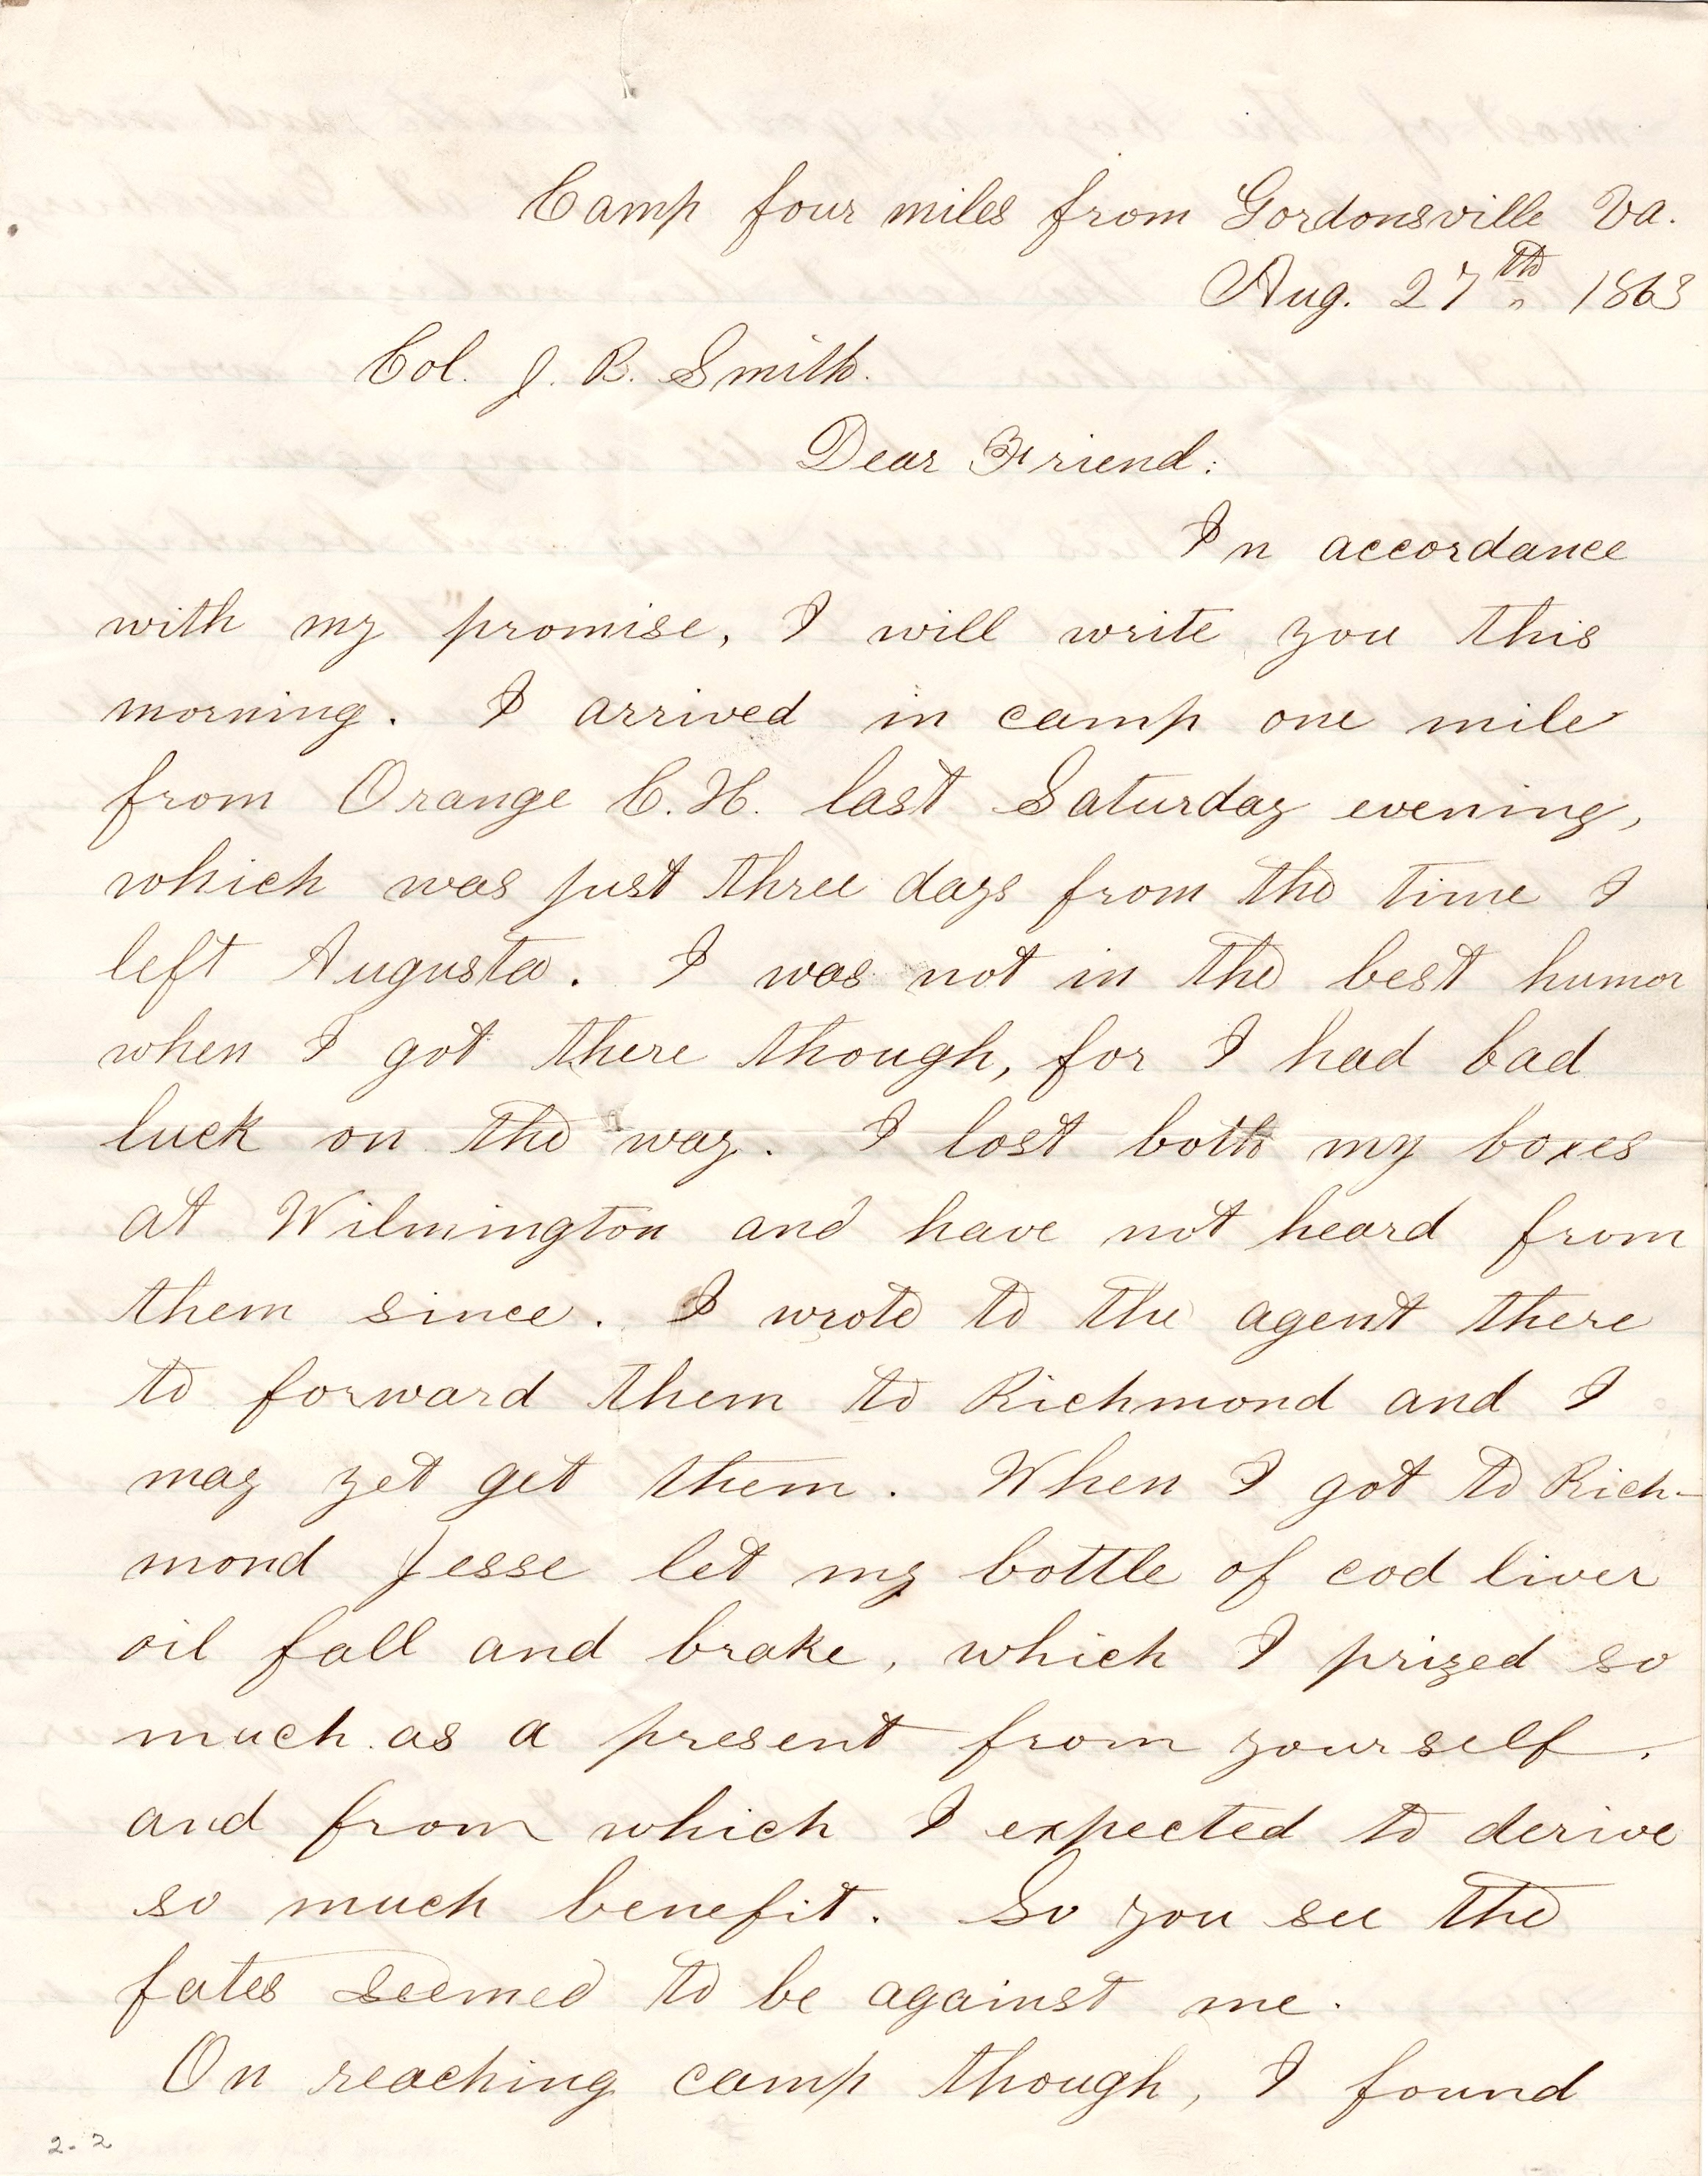 Camp four miles from Gordonsville Va.
Aug. 27th 1863
Col. J. B. Smith.
Dear Friend:
In accordance
with my promise, I will write you this
morning. I arrived in camp one mile
from Orange C.H. last Saturday evening,
which was just three days from the time I
left Augusta. I was not in the best humor
when I got there though, for I had bad
luck on the way. I lost both my boxes
at Wilmington and have not heard from
them since. I wrote to the agent there
to forward them to Richmond and I
may yet get them. When I got to Rich-
mond Jesse let my bottle of cod liver
oil fall and brake, which I prized so
much as a present from yourself,
and from which I expected to derive
so much benefit. So you see the
fates seemed to be against me.
On reaching camp though, I found
2-2